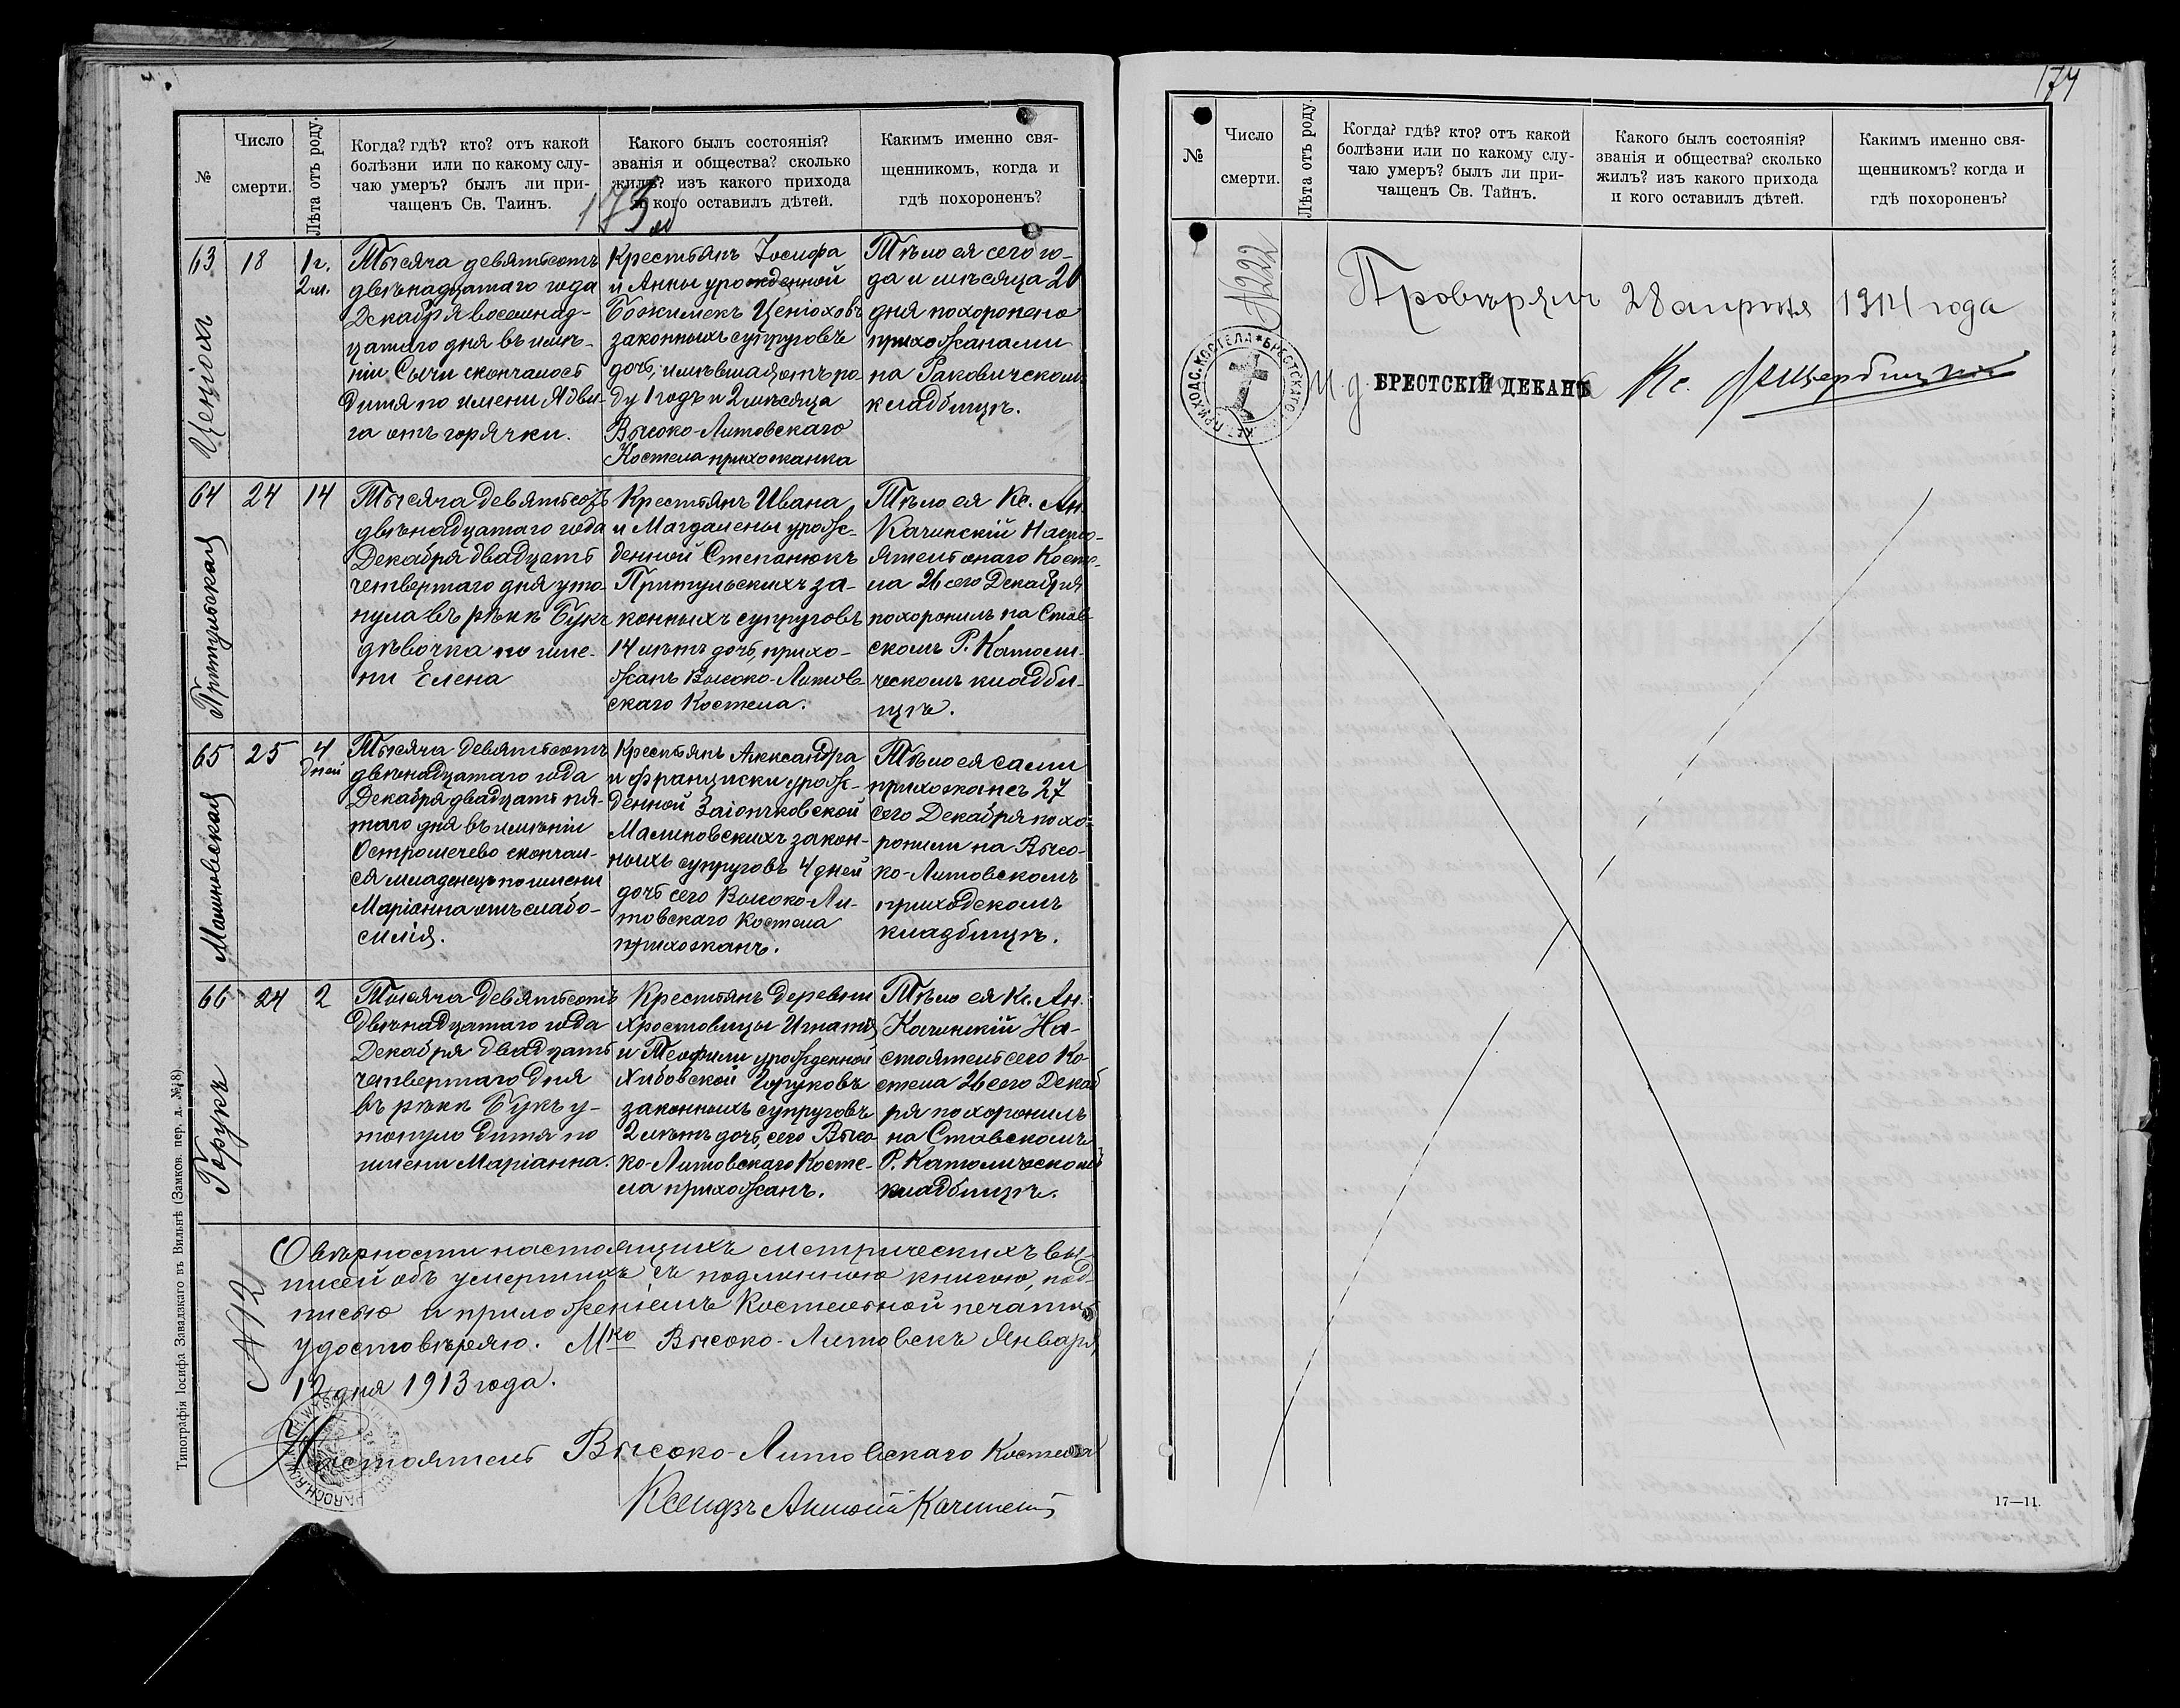 №
Число
смерти.
Лѣта отъ роду.
Когда? гдѣ? кто? отъ какой
болѣзни или по какому слу-
чаю умеръ? былъ ли при-
чащенъ Св. Таинъ.
Какого былъ состоянія?
званія и общества? сколько
жилъ? изъ какого прихода
и кого оставилъ дѣтей.
Какимъ именно свя-
щенникомъ, когда и
гдѣ похороненъ?
173
63
Ценіохъ
18
1 г.
2 м.
Тысяча девятьсотъ
двѣнадцатаго года
Декабря восемнад-
цатаго дня въ имѣ-
ніи Сычи скончалось
дитя по имени Ядви-
га отъ горячки.
Крестьянъ Іосифа
и Анны урожденной
Божимекъ Ценіоховъ
законныхъ супруговъ
дочь, имѣвшая отъ ро
ду 1 годъ и 2 мѣсяца
Высоко-Литовскаго
Костела прихожанка
Тѣло ея сего го-
да и мѣсяца 20
дня похоронено
прихожанами
на Раковичскомъ
кладбищѣ.
64
Притульская
24
14
Тысяча девятьсотъ
двѣнадцатаго года
Декабря двадцать
четвертаго дня уто-
нула въ рѣкѣ Бугъ
дѣвочка по име-
ни Елена
Крестьянъ Ивана
и Магдалены урож-
денной Степанюкъ
Притульскихъ за-
конныхъ супруговъ
14 лѣтъ дочь, прихо-
жанъ Высоко-Литов-
скаго Костела.
Тѣло ея Кс. Ан.
Качинскій Насто-
ятель онаго Косте-
ла 26 сего Декабря
похоронилъ на Став-
скомъ Р. Католи-
ческомъ кладби-
щѣ.
65
Малиновская
25
4
дней
Тысяча девятьсотъ
двѣнадцатаго года
Декабря двадцать пя-
таго дня въ имѣніи
Остромечево скончал-
ся младенецъ по имени
Маріанна отъ слабо-
силія.
Крестьянъ Александра
и Франциски урож-
денной Заіончковской
Малиновскихъ закон-
ныхъ супруговъ 4 дней
дочь сего Высоко-Ли-
товскаго Костела
прихожанъ.
Тѣло ея сами
прихожане 27
сего Декабря похо-
ронили на Высо-
ко-Литовскомъ
приходскомъ
кладбищѣ.
66
Горукъ
24
2
Тысяча девятьсотъ
двѣнадцатаго года
Декабря двадцать
четвертаго дня
въ рѣкѣ Бугъ у-
тонуло дитя по
имени Маріанна.
Крестьянъ деревни
Хростовицы Игнатія
и Теофили урожденной
Хибовской Горуковъ
законныхъ супруговъ
2 лѣтъ дочь, сего Высо-
ко-Литовскаго Косте-
ла прихожанъ.
Тѣло ея Кс. Ан.
Качинскій На-
стоятель сего Ко-
стела 26 сего Декаб
ря похоронилъ
на Ставскомъ
Р. Католическомъ
кладбищѣ.
О вѣрности настоящихъ метрическихъ вы-
писей объ умершихъ съ подлинною книгою, под-
писью и приложеніемъ Костельной печати
удостовѣряю. Мко Высоко-Литовскъ Января
12 дня 1913 года.
№ 12
Настоятель Высоко-Литовскаго Костела
Ксендзъ Антоній Качинскій
Типографія Іосифа Завадзкаго въ Вильнѣ (Замков. пер. д. № 8)
174
№
Число
смерти.
Лѣта отъ роду.
Когда? гдѣ? кто? отъ какой
болѣзни или по какому слу-
чаю умеръ? былъ ли при-
чащенъ Св. Тайнъ.
Какого былъ состоянія?
званія и общества? сколько
жилъ? изъ какого прихода
и кого оставилъ дѣтей.
Какимъ именно свя-
щенникомъ? когда и
гдѣ похороненъ?
№222
Провѣрялъ 28 апрѣля 1914 года
И. д. БРЕСТСКІЙ ДЕКАНЪ Кс.
ПРИХОДС. КОСТЕЛА * БРЕСТСКАГО
17—11.